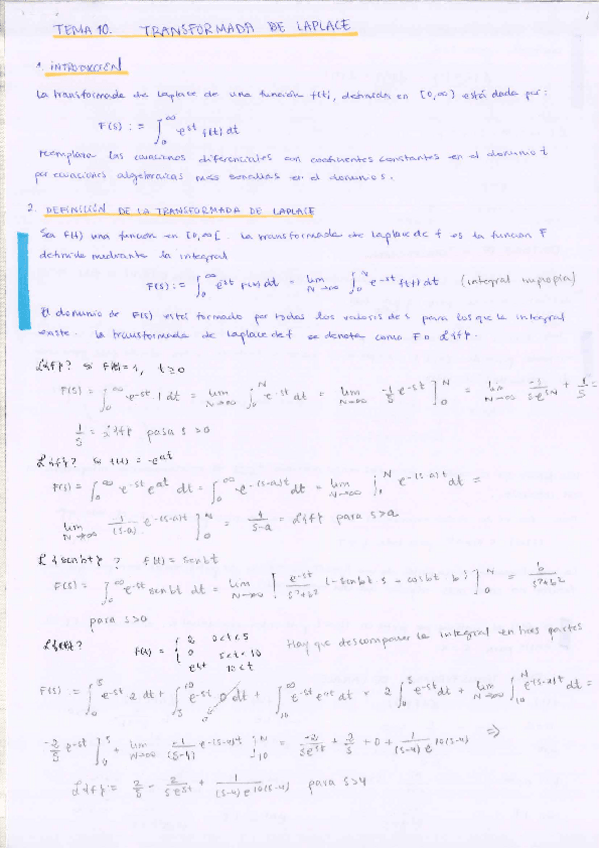 TEMA 10. TRANSFORMADA DE LAPLACE
1. INTRODUCCIÓN
La transformada de Laplace de una función f(t), definida en [0,∞) está dada por:
F(s) := ∫₀^∞ e^st f(t) dt
reemplaza las ecuaciones diferenciales con coeficientes constantes en el dominio t
por ecuaciones algebraicas más sencillas en el dominio s.
2. DEFINICIÓN DE LA TRANSFORMADA DE LAPLACE
Sea f(t) una función en [0,∞[. La transformada de Laplace de f es la función F
definida mediante la integral
F(s) := ∫₀^∞ e^st f(t) dt = lim N→∞ ∫₀^N e^-st f(t) dt (integral impropia)
El dominio de F(s) está formado por todos los valores de s para los que la integral
existe. La transformada de Laplace de f se denota como F o L{f}.
L{f}? si f(t)=1, t≥0
F(s) = ∫₀^∞ e^-st 1 dt = lim N→∞ ∫₀^N e^-st dt = lim N→∞ -1/s e^-st ]₀^N = lim N→∞ -1/(s e^sN) + 1/s =
1/s = L{f} para s>0
L{f}? si f(t) = e^at
F(s) = ∫₀^∞ e^-st e^at dt = ∫₀^∞ e^-(s-a)t dt = lim N→∞ ∫₀^N e^-(s-a)t dt =
lim N→∞ 1/(s-a) e^-(s-a)t ]₀^N = 1/(s-a) = L{f} para s>a
L{senbt}? f(t) = senbt
F(s) = ∫₀^∞ e^-st senbt dt = lim N→∞ [ e^-st/(s²+b²) (-senbt s - cosbt b) ]₀^N = b/(s²+b²)
para s>0
f(t) = { 2 0<t<5
0 5<t<10 Hay que descomponer la integral en tres partes
e^4t 10<t
F(s) = ∫₀^5 e^-st 2 dt + ∫₅^10 e^-st 0 dt + ∫₁₀^∞ e^-st e^4t dt = 2 ∫₀^5 e^-st dt + lim N→∞ ∫₁₀^N e^-(s-4)t dt =
-2/s e^-st ]₀^5 + lim N→∞ -1/(s-4) e^-(s-4)t ]₁₀^N = -2/(s e^5s) + 2/s + 0 + 1/((s-4) e^10(s-4)) ⇒
L{f} = 2/s - 2/(s e^5s) + 1/((s-4) e^10(s-4)) para s>4